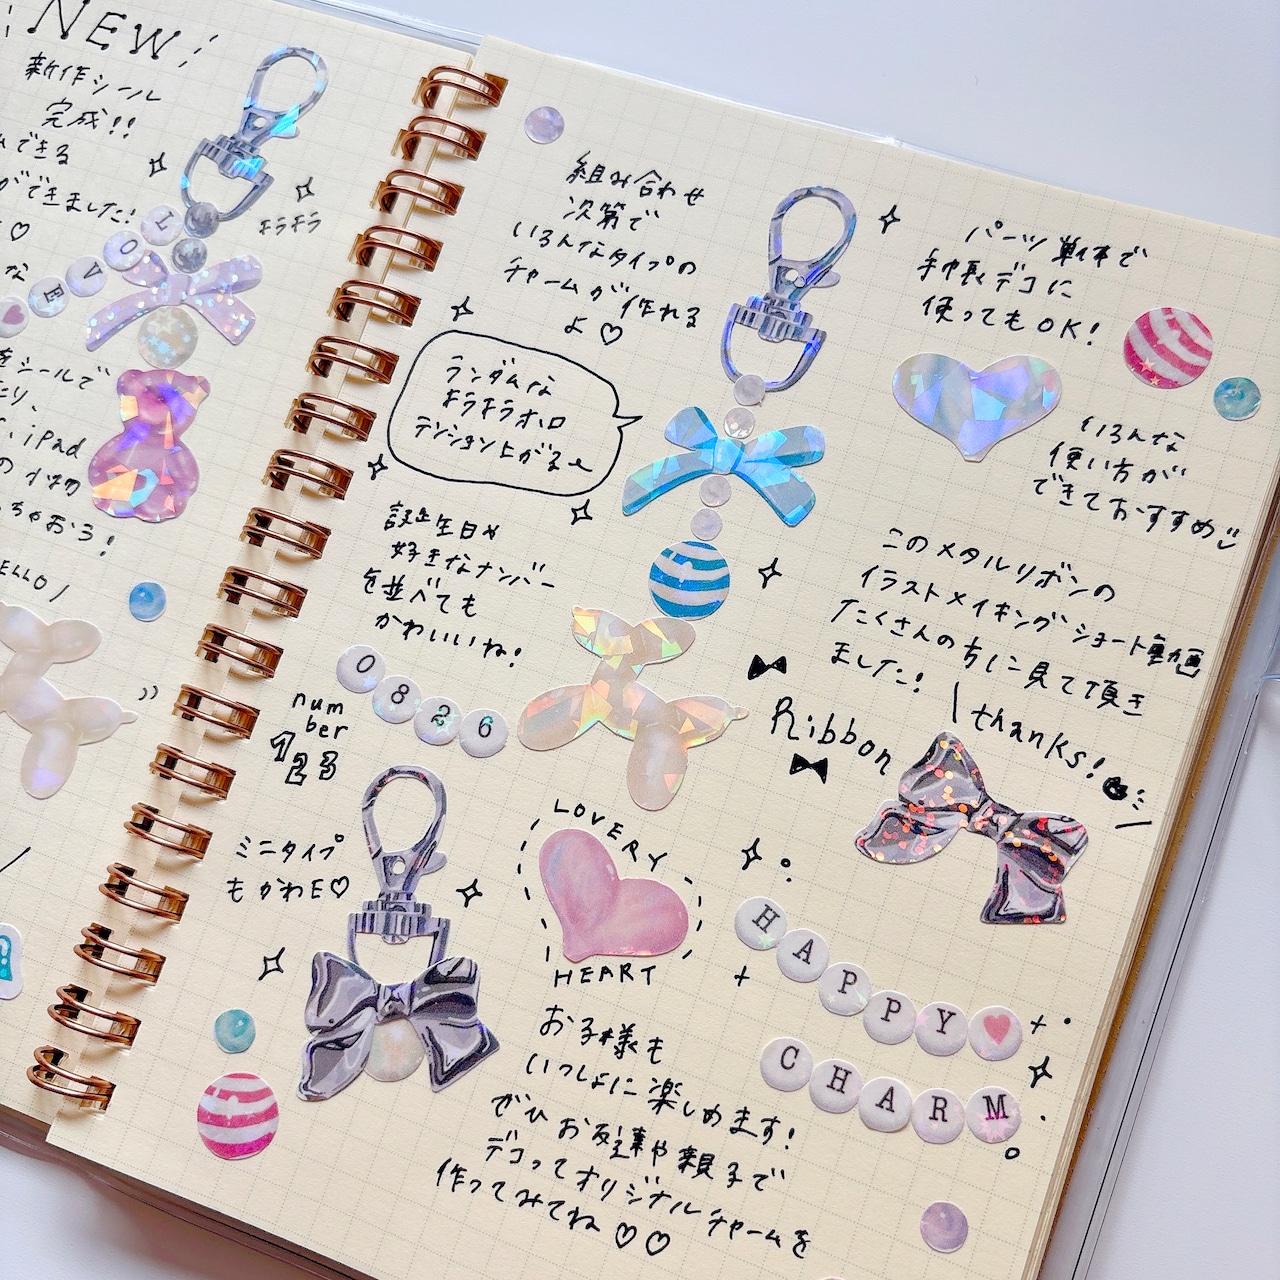 NEW
新作シール
完成!!
できる
ができました!
♡
な
キラキラ
LOVE
をシールで
たり、
iPad
の小物
ちゃおう!
HELLO
組み合わせ
次第で
いろんなタイプの
チャームが作れる
よ♡
ランダムな
キラキラホロ
テンション上がるー
誕生日や
好きなナンバー
を並べても
かわいいね!
0826
num
ber
123
ミニタイプ
もかわE♡
パーツ単体で
手帳デコに
使ってもOK!
いろんな
使い方が
できておすすめ
このメタルリボンの
イラストメイキングショート動画
たくさんの方に見て頂き
ました!
thanks!
Ribbon
LOVERY
HEART
HAPPY
CHARM
お子様も
いっしょに楽しめます!
ぜひお友達や親子で
デコってオリジナルチャームを
作ってみてね♡♡